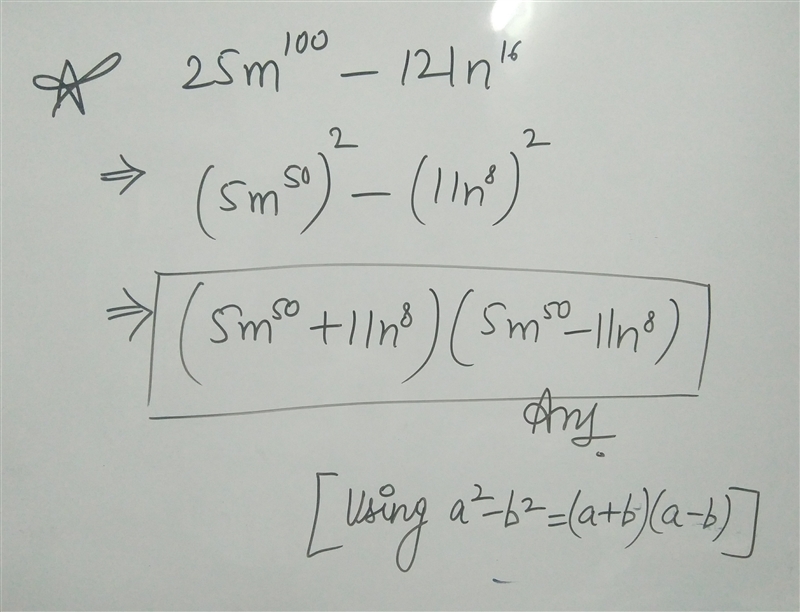 ☆ 25m¹⁰⁰ − 121n¹⁶
⇒ (5m⁵⁰)² − (11n⁸)²
⇒ (5m⁵⁰ + 11n⁸)(5m⁵⁰ − 11n⁸)
Ans.
[Using a² − b² = (a+b)(a−b)]